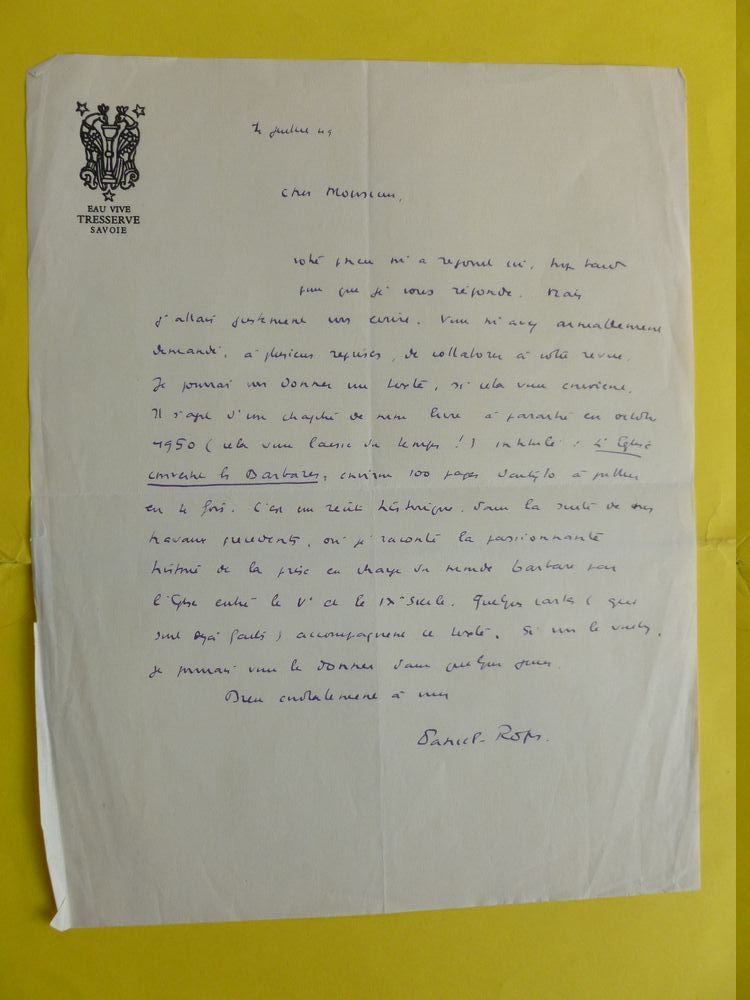 EAU VIVE
TRESSERVE
SAVOIE
juillet 49
Cher Monsieur,
votre pneu m'a rejoint ici, trop tard
pour que je vous réponde. Mais
j'allais justement vous écrire. Vous m'avez aimablement
demandé, à plusieurs reprises, de collaborer à votre revue.
Je pourrais vous donner un texte, si cela vous convient.
Il s'agit d'un chapitre de mon livre à paraître en octobre
1950 (cela vous laisse du temps !) intitulé : L'Eglise
convertit les Barbares, environ 100 pages dactylo à publier
en 4 fois. C'est un récit historique, dans la suite de mes
travaux précédents, où je raconte la passionnante
histoire de la prise en charge du monde barbare par
l'Eglise entre le Ve et le IXe siècle. Quelques cartes (qui
sont déjà faites) accompagnent ce texte. Si vous le voulez,
je pourrais vous le donner dans quelques jours.
Bien cordialement à vous
Daniel-Rops.